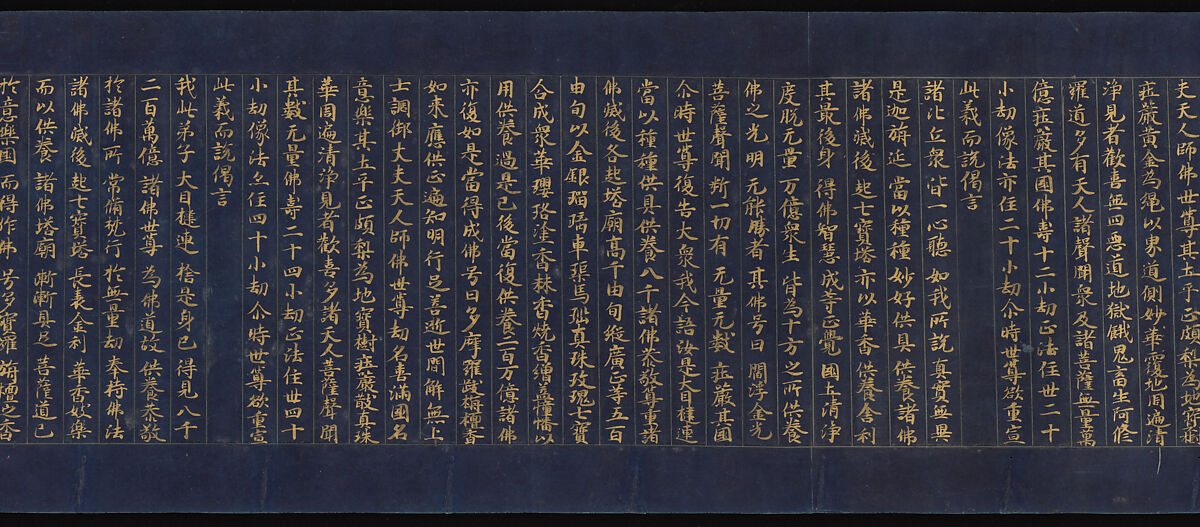 夫天人師佛世尊其土平正頗梨為地寶樹
莊嚴黃金為繩以界道側妙華覆地周遍清
淨見者歡喜無四惡道地獄餓鬼畜生阿修
羅道多有天人諸聲聞眾及諸菩薩無量萬
億莊嚴其國佛壽十二小劫正法住世二十
小劫像法亦住二十小劫尒時世尊欲重宣
此義而說偈言
諸比丘眾皆一心聽如我所說真實無異
是迦旃延當以種種妙好供具供養諸佛
諸佛滅後起七寶塔亦以華香供養舍利
其最後身得佛智慧成等正覺國土清淨
度脫无量万億眾生皆為十方之所供養
佛之光明无能勝者其佛号曰閻浮金光
菩薩聲聞斷一切有无量无數莊嚴其國
尒時世尊復告大眾我今語汝是大目揵連
當以種種供具供養八千諸佛恭敬尊重諸
佛滅後各起塔廟高千由旬縱廣正等五百
由旬以金銀瑠璃車𤦲馬瑙真珠玫瑰七寶
合成眾華瓔珞塗香抹香燒香繒蓋幢幡以
用供養過是已後當復供養二百万億諸佛
亦復如是當得成佛号曰多摩羅跋栴檀香
如來應供正遍知明行足善逝世間解無上
士調御丈夫天人師佛世尊劫名喜滿國名
意樂其土平正頗梨為地寶樹莊嚴散真珠
華周遍清淨見者歡喜多諸天人菩薩聲聞
其數无量佛壽二十四小劫正法住世四十
小劫像法亦住四十小劫尒時世尊欲重宣
此義而說偈言
我此弟子大目揵連捨是身已得見八千
二百萬億諸佛世尊為佛道故供養恭敬
於諸佛所常脩梵行於無量劫奉持佛法
諸佛滅後起七寶塔長表金刹華香妓樂
而以供養諸佛塔廟漸漸具足菩薩道已
於意樂國而得作佛号多摩羅栴檀之香